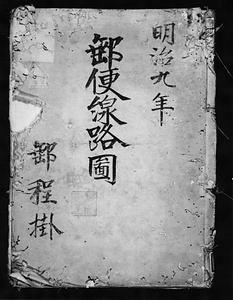 明治九年
郵便線路圖
郵程掛